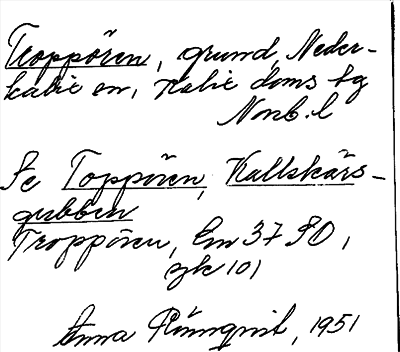 Troppören, grund, Neder-
kalix sn, Kalix doms tg
Norrb. l
Se Toppören, Kallskärs-
gubben
Troppören, Em 37 SO,
zk 101
Anna Rönnqvist, 1951